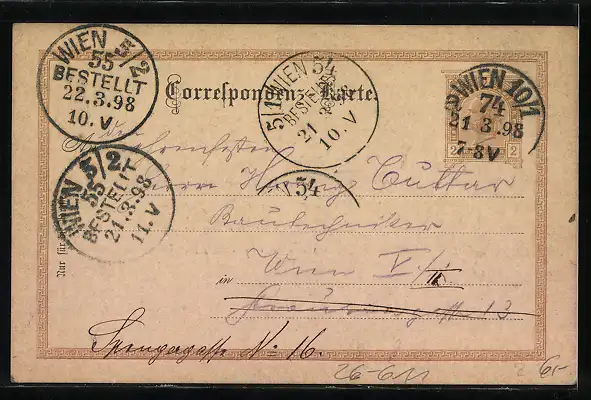 WIEN 5/2
55
BESTELLT
22.3.98
10.V
WIEN 54
5/1
BESTELLT
21 3 98
10.V
WIEN 10/1
74
21 3.98
7-8V
Correspondenz-Karte.
2 2
WIEN 5/2
55
BESTELLT
21.3.98
11.V
54
Herrn
Bautechniker
Nur für
in Wien V/
13
Sprengergasse No 16.
26-611
6-